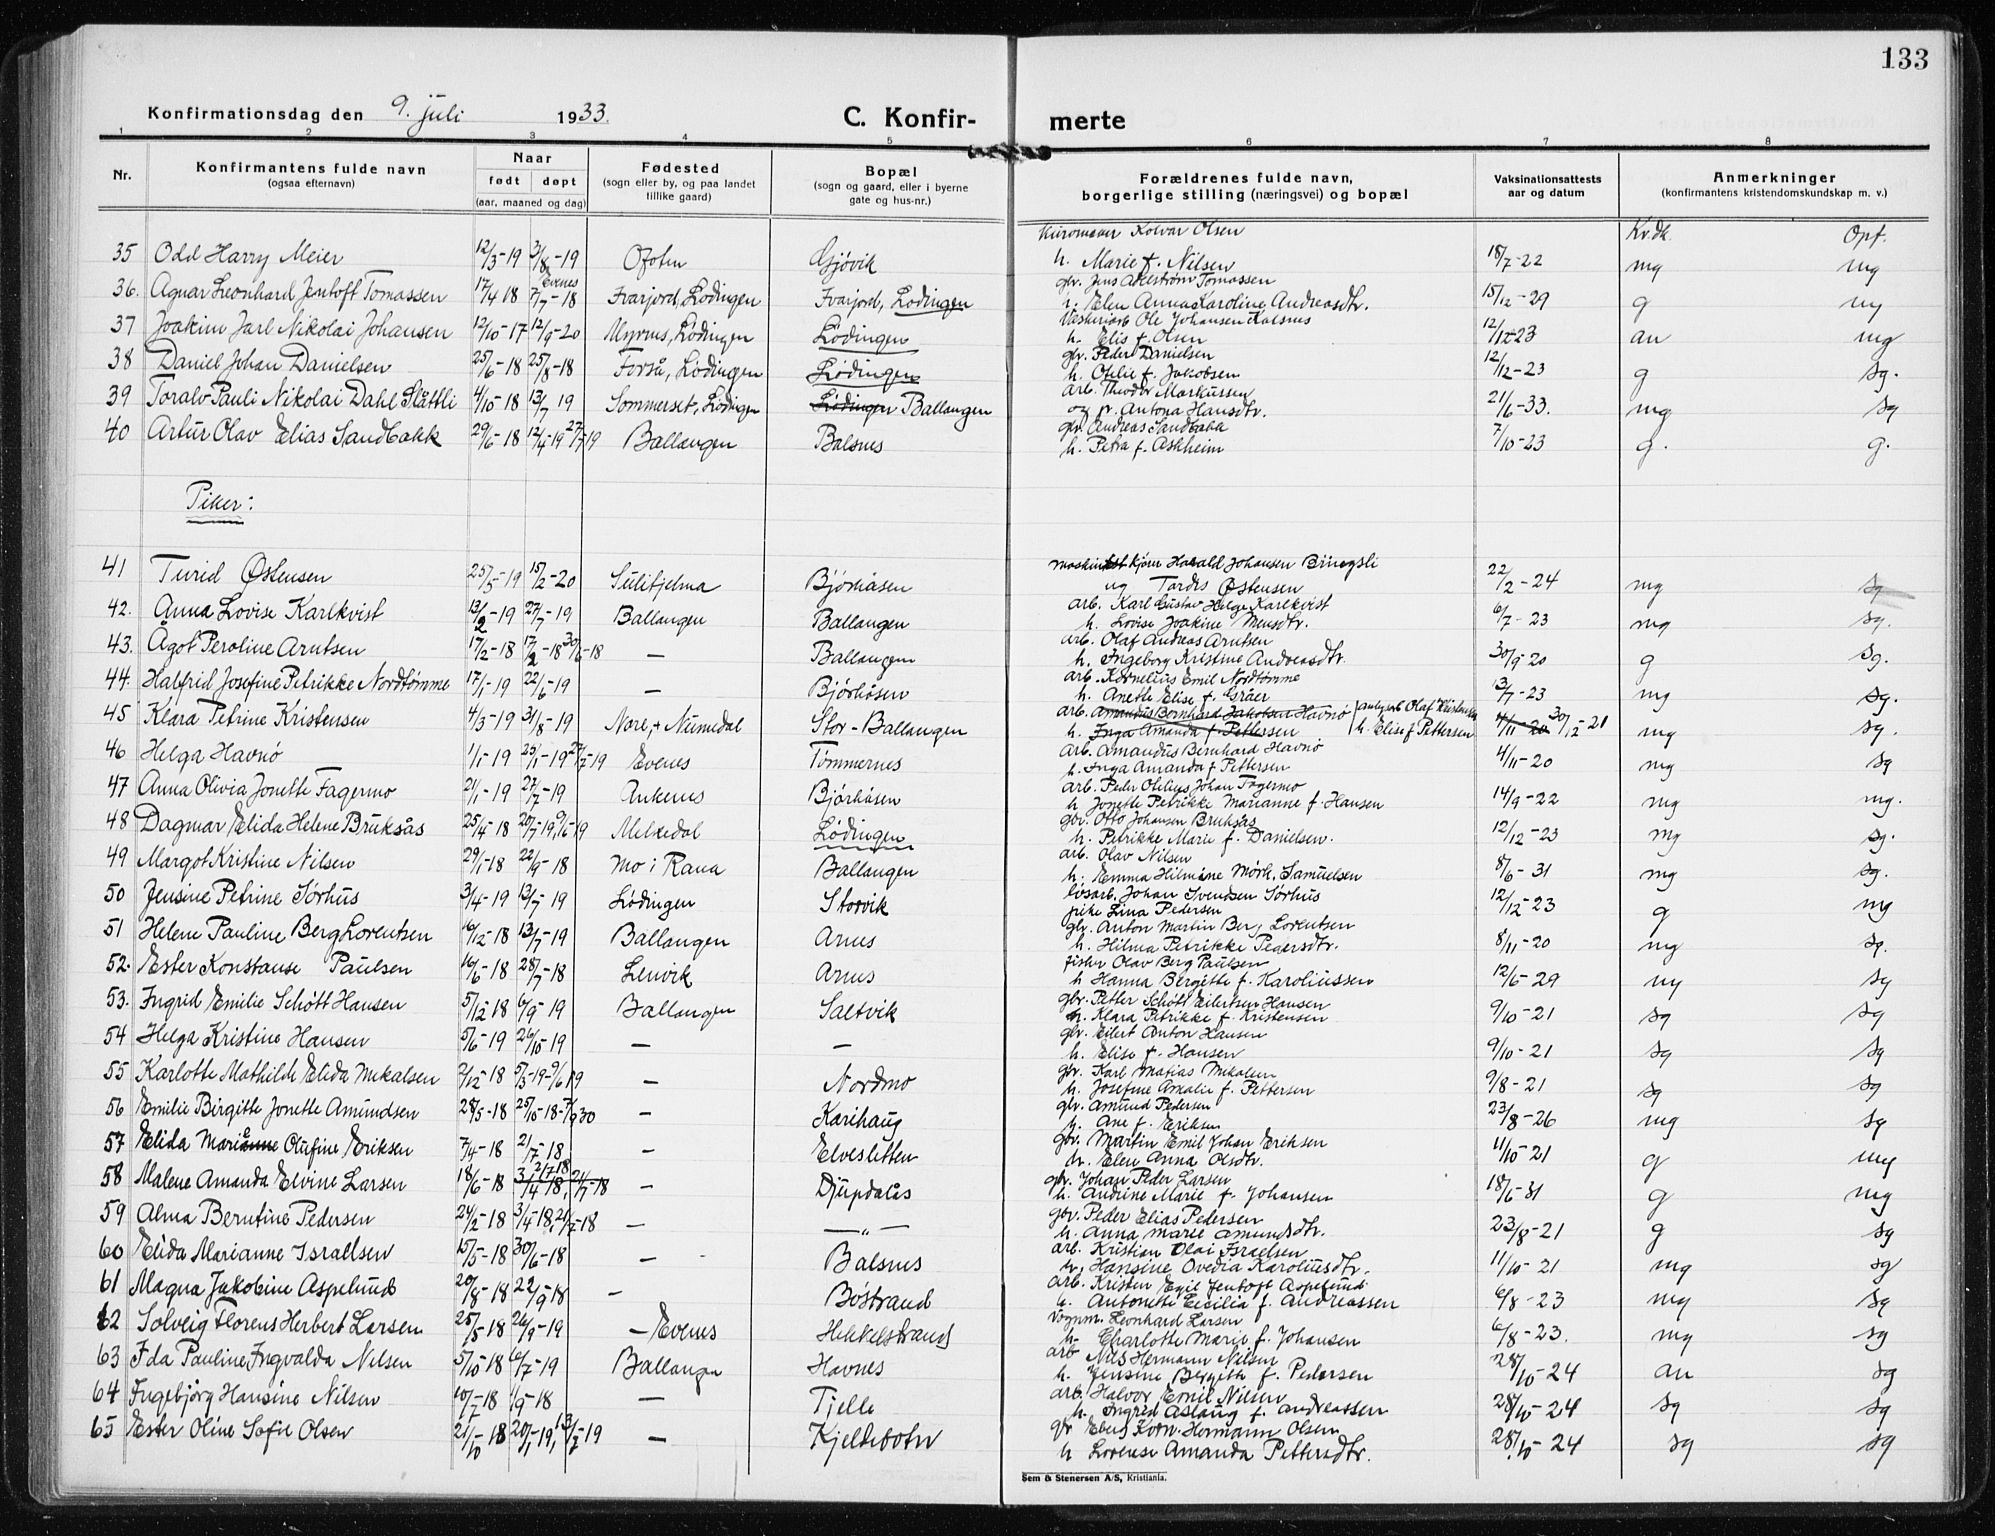 133
Konfirmationsdag den 9. juli 1933. C. Konfir- merte
1 2 3 4 5 6 7 8
Nr. Konfirmantens fulde navn (ogsaa efternavn) Naar født døpt (aar, maaned og dag) Fødested (sogn eller by, og paa landet tillike gaard) Bopæl (sogn og gaard, eller i byerne gate og hus-nr.) Forældrenes fulde navn, borgerlige stilling (næringsvei) og bopæl Vaksinationsattests aar og datum Anmerkninger (konfirmantens kristendomskundskap m. v.)
Olsen Kr.dk. Opf.
35 Odd Harry Meier 12/3-19 3/8-19 Ofoten Gjøvik h. Marie f. Nilsen 18/7-22 mg mg
36. Agnar Leonhard Jentoft Tomassen 17/4 18 7/7-18 Evenes Lødingen Lødingen gbr. Jens Tomassen
h. Elen Anna Karoline Andreasdtr. 15/12-29 g mg
37 Joakim Jarl Nikolai Johansen 12/10-17 12/9-20 Lødingen Lødingen Ole Johansen
h. Elis f. Olsen 12/12-23 an mg
38 Daniel Johan Danielsen 25/6-18 25/8-18 Forså, Lødingen Lødingen gbr. Peder Danielsen
h. Otilie f. Jakobsen 12/12-23 g sg.
39 Toralv Pauli Nikolai Dahl Slåttli 4/10-18 13/7 19 Sommerset, Lødingen Lødingen Ballangen arb. Theodor Markussen
og pr. Antona Hansdtr. 21/6-33. mg sg
40 Artur Olav Elias Sandbakk 29/6-18 12/4-19 27/7-19 Ballangen Balsnes gbr. Andreas Sandbakk
h. Petra f. Askheim 7/10-23 g. g.
Piker:
41 Turid Østensen 25/5-19 15/2-20 Sulitjelma Bjørkåsen Harald Johansen
og Tordis Østensen 22/2-24 mg sg
42. Anna Lovise Karlkvist 13/2-19 27/7-19 Ballangen Ballangen arb. Karl Gustav Helge Karlkvist
h. Lovise Joakine Mensdtr. 6/7-23 mg sg.
43. Ågot Peroline Arntsen 17/2-18 17/2-18 30/6-18 — Ballangen arb. Olaf Andreas Arntsen
h. Ingeborg Kristine Andreasdtr. 30/9-20 g sg.
44. Halfrid Josefine Petrikke Nordtømme 17/1-19 22/6-19 — Bjørkåsen arb. Kornelius Emil Nordtømme
h. Anette Elise f. Gråer 13/7-23 mg sg.
45 Klara Petrine Kristensen 4/3-19 31/8-19 Nore, Numedal Stor-Ballangen arb. Amandus Bernhard Jakobsen Havnø Olaf Kristensen
h. Inga Amanda f. Pettersen h. Elise f. Pettersen 4/11-20 30/12-21 mg sg.
46 Helga Havnø 1/1-19 25/1-19 27/7-19 Evenes Tømmernes arb. Amandus Bernhard Havnø
h. Inga Amanda f. Pettersen 4/11-20 mg sg
47 Anna Olivia Jonette Fagermo 21/1-19 27/7-19 Ankenes Bjørkåsen arb. Peder Otelius Johan Fagermo
h. Jonette Petrikke Marianne f. Hansen 14/9-22 mg mg.
48 Dagmar Elida Helene Bruksås 25/4-18 20/7-19, 9/6-19 Melkedal Lødingen gbr. Otto Johansen Bruksås
h. Petrikke Marie f. Danielsen. 12/12-23 mg sg.
49 Margot Kristine Nilsen 29/1-18 22/9-18 Mo i Rana Ballangen arb. Olav Nilsen
h. Emma Hilmine Mørk, Samuelsen 8/6-31 mg sg.
50 Jensine Petrine Sørhus 3/4-19 13/7-19 Lødingen Storvik løsarb. Johan Svendsen Sørhus
pike Lina Pedersen 12/12-23 g mg
51 Helene Pauline Berg Lorentsen 16/12-18 13/7-19 Ballangen Arnes gbr. Anton Martin Berg Lorentsen
h. Hilma Petrikke Pedersdtr. 8/11-20 mg sg.
52. Ester Konstanse Paulsen 16/6-18 28/7-18 Lenvik Arnes fisker Olav Berg Paulsen
h Hanna Bergitte f. Karoliussen 12/6-29 mg sg
53. Ingrid Emilie Schøtt Hansen 5/12 18 6/9-19 Ballangen Saltvik gbr. Petter Schøtt Eilertsen Hansen
h. Klara Petrikke f. Kristensen 9/10-21 sg sg
54 Helga Kristine Hansen 5/6-19 26/10-19 — — gbr. Eilert Anton Hansen
h. Elise f. Hansen 9/10-21 sg sg
55 Karlotte Mathilde Elida Mikalsen 2/12-18 5/3-19-9/6 19 — Nordmo gbr. Karl Matias Mikalsen
h. Josefine Amalie f. Pettersen 9/8-21 sg sg
56 Emilie Birgitte Jonette Amundsen 28/5-18 25/10-18-7/9 30 — Karihaug gbr. Amund Pedersen
h. Ane f. Eriksen 23/8-26 mg sg
57 Elida Marianne Olufine Eriksen 7/4-18 21/7-18 — Elvesletten gbr. Martin Emil Johan Eriksen
h. Elen Anna Olsdtr. 11/10-21 g mg
58 Malene Amanda Elvine Larsen 18/6-18 3/4 18, 21/7-18 — Djupdalås gbr. Johan Peder Larsen
h. Andrine Marie f. Johansen 18/6-31 g mg
59 Alma Berntine Pedersen 24/2-18 3/4-18, 21/7-18 — —„— gbr. Peder Elias Pedersen
h. Anna Marie Amundsdtr. 23/8-21 g sg
60 Elida Marianne Israelsen 15/5-18 30/6-18 — Balsnes arb. Kristian Olai Israelsen
h. Hansine Ovedia Karoliusdtr. 11/10-21 mg sg
61 Magna Jakobine Aspelund 20/8-18 22/9-18 — Bøstrand arb. Kristen Egil Jentoft Aspelund
h. Antonette Cecilia f. Andreassen 6/8-23 mg sg
62 Solveig Florens Herbert Larsen 25/5-18 26/9-19 — Evenes Hekkelstrand Vognm. Leonhard Larsen
h. Charlotte Marie f. Johansen 6/8-23. mg sg
63 Ida Pauline Ingvalda Nilsen 5/10-18 6/7-19 Ballangen Havnes arb Nils Hermann Nilsen
h. Jensine Bergitte f. Pedersen 28/10-24 an sg
64 Ingebjørg Hansine Nilsen 10/7-18 1/9-18 — Tjelle arb. Halvor Emil Nilsen
h. Ingrid Aslaug f. Andreassen 28/10-24 sg sg
65 Ester Oline Sofie Olsen 21/10-18 20/1-19, 13/7-19 — Kjeldebotn Hermann Olsen
h Lorense Amanda Pettersdtr. 28/10-24 sg sg
Sem & Stenersen A/S, Kristiania.